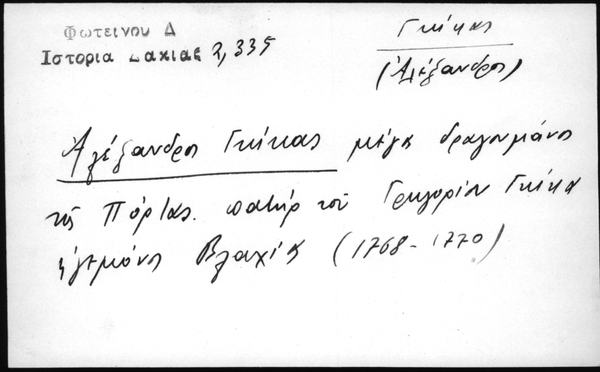 Φωτεινου Δ
Ιστορια Δακιας 2,335
Γκίκας
(Ἀλέξανδρος)
Ἀλέξανδρος Γκίκας μέγα δραγουμάνος
τῆς Πόρτας. πατήρ τοῦ Γρηγορίου Γκίκα
ἡγεμόνος Βλαχίας (1768-1770)